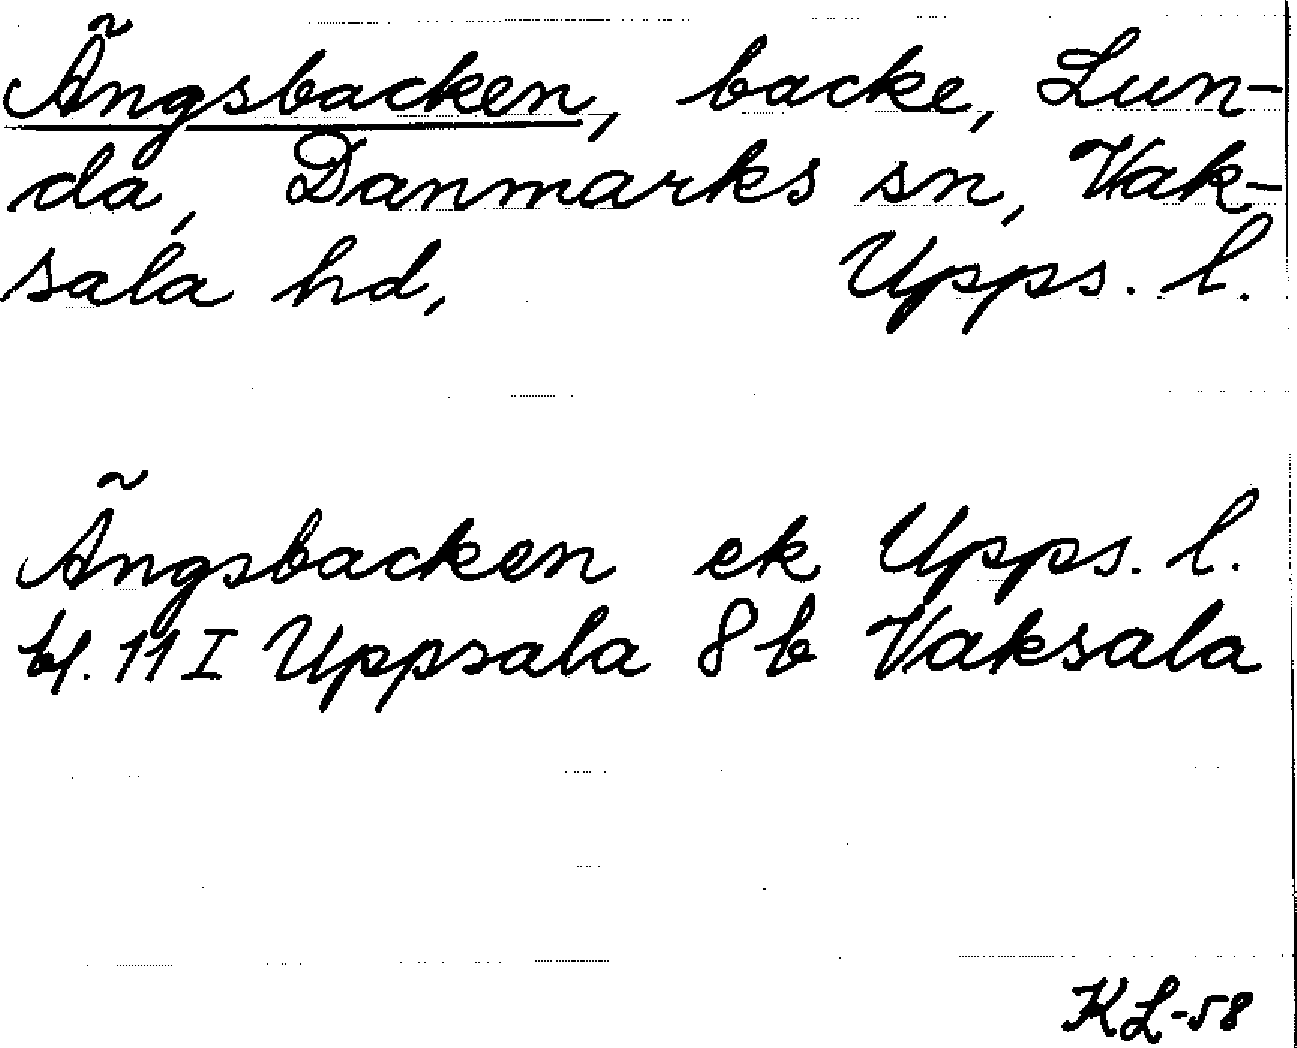 Ängsbacken, backe, Lun-
da, Danmarks sn, Vak-
sala hd, Upps. l.
Ängsbacken ek Upps. l.
bl. 11 I Uppsala 8 b Vaksala
KL-58